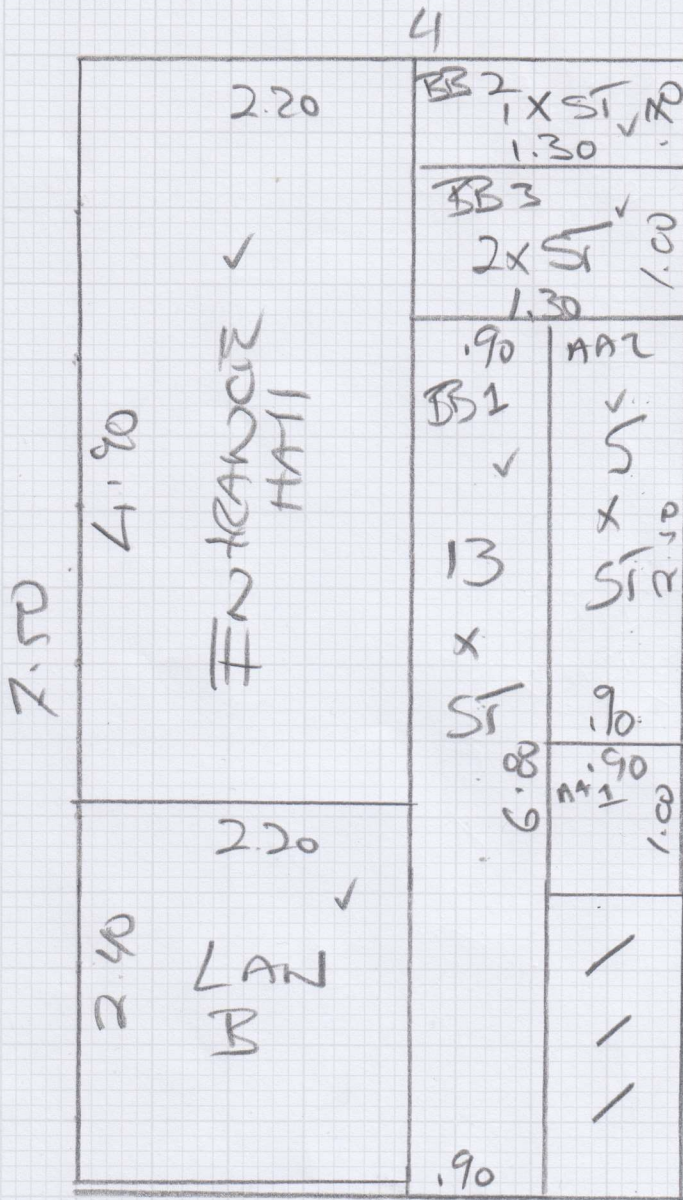 4
7.50
2.20
4.90
ENTRANCE
HALL
2.20
2.40
LAN
B
BB 2
1 X ST
1.30
BB 3
2 X ST
1.30
1.00
.90
BB 1
13
X
ST
6.08
.90
AA2
5
X
ST
.90
.90
AA1
1.00